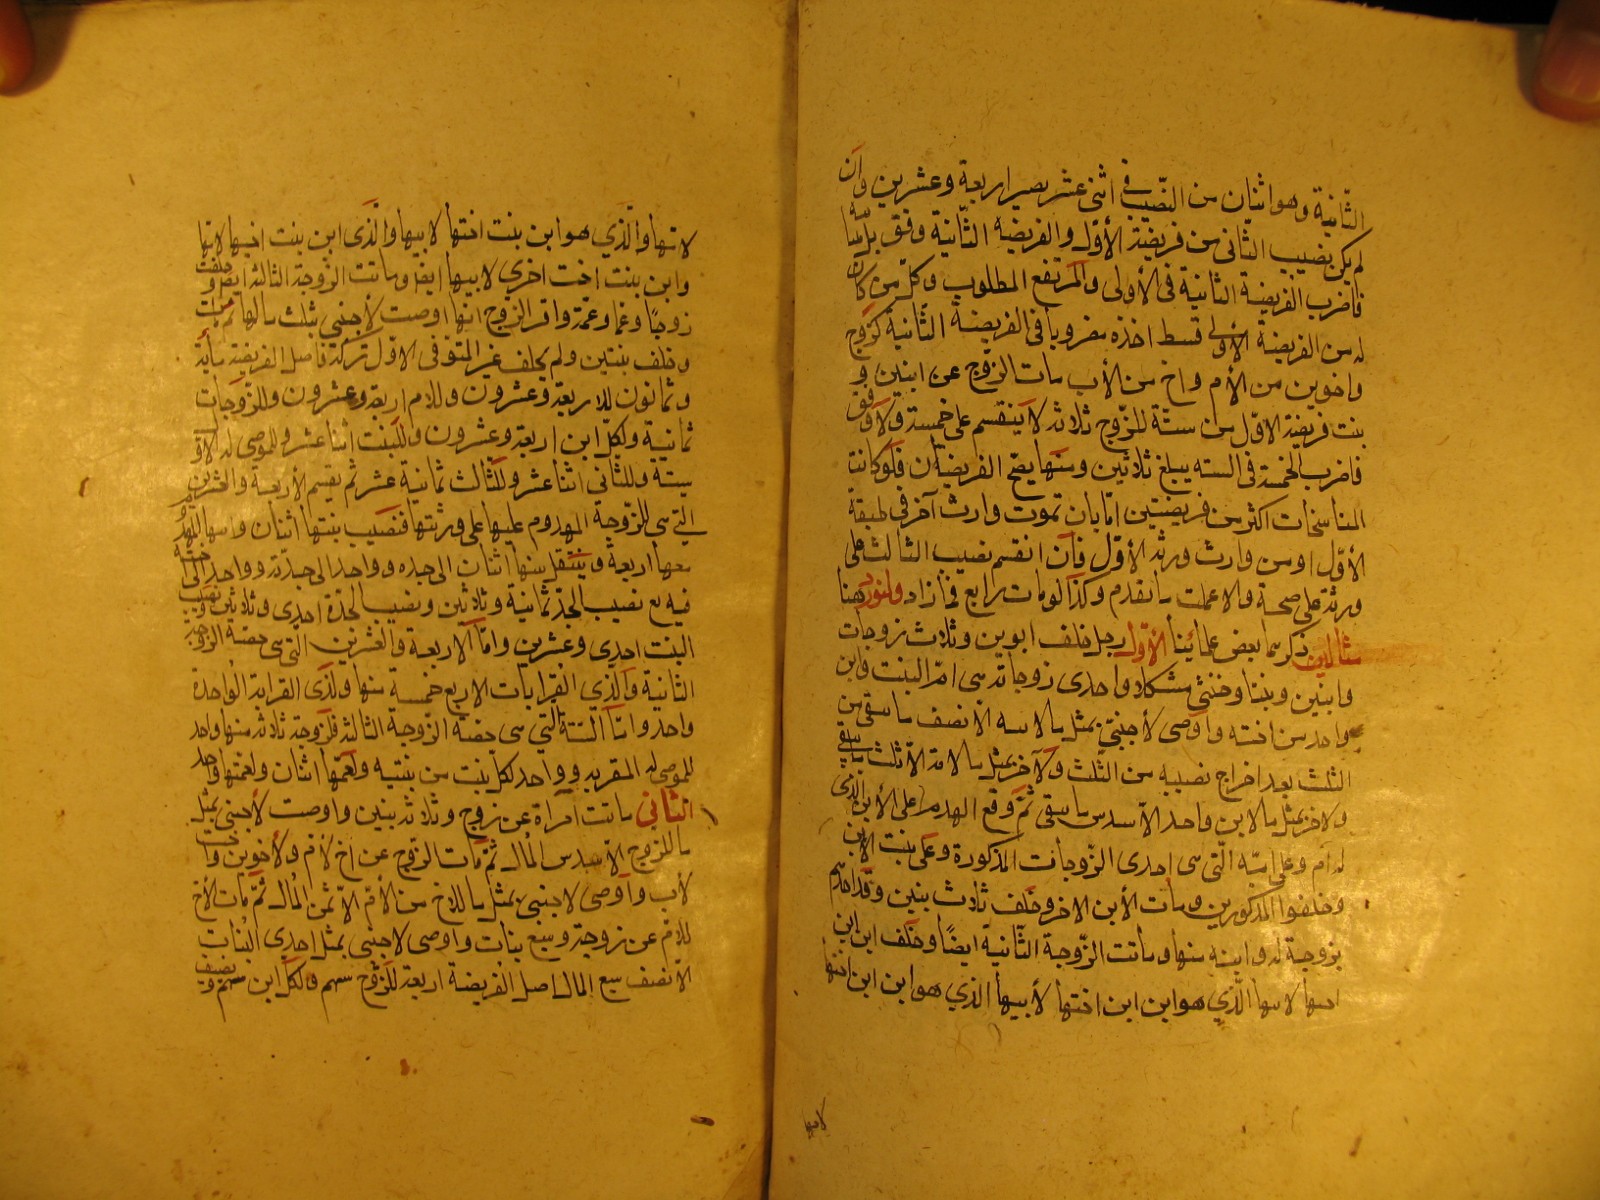 الثّانية وهو اثنان من النّصيب في اثنى عشر يصير اربعة وعشرين وان
لم يكن بنصيب الثّانى من فريضة الأوّل والفريضة الثّانية وفق بل مباينة
فاضرب الفريضة الثانية فى الأولى والمرتفع المطلوب وكلّ من كان
له من الفريضة الأولى قسط اخذه مضروبا فى الفريضة الثّانية كزوج
واخوين من الأم واخ من الأب مات الزّوج عن ابنين و
بنت فريضة الاوّل من ستّة للزّوج ثلاثة لا ينقسم على خمسة ولا وفق
فاضرب الخمسة فى السته يبلغ ثلاثين ومنها يصّح الفريضتان فلو كانت
المناسخات اكثر من فريضتين امّا بان تموت وارث آخر فى طبقة
الأوّل او من وارث ورثة الأوّل فان انقسم نصيب الثالث على
ورثته على صحة والا عملت ما تقدم وكذا لو مات رابع فما زاد ولنورد هنا
مثالين ذكرهما بعض علمائنا الأوّل رجل خلف ابوين وثلاث زوجات
وابنين وبنتا وخنثى مشكلا واحدى زوجاته هى امّ البنت وابن
واحد من اخته واوصى لأجنبىّ بمثل ما لابنه الا نصف ما بقى من
الثلث بعد اخراج نصيبه من الثّلث ولآخر بمثل ما لامّه الا ثلث ما يبقى
ولآخر بمثل ما لابن واحد الّا سدس ما يبقى ثمّ وقع الهدم على الأبن الذى
له ام وعلى امّه الّتى هى احدى الزّوجات المذكورة وعلى بنت الابن
وخلفوا المذكورين ومات الأبن الآخر وخلّف ثلاث بنين وقد احدهم
بزوجة له وابنه منها وماتت الزّوجة الثّانية ايضًا وخلّف ابن ابن
اختها لامها الّذي هو ابن ابن اختها لأبيها الذي هو ابن ابن اختها
لامها
لامها والّذي هو ابن بنت اختها لابيها والّذى ابن بنت اختها لامها
وابن بنت اخت اخرى لابيها ايضا وماتت الزّوجة الثالثة ايضا وخلفت
زوجًا وعما وعمة واقر الزوج انها اوصت لأجنبى بثلث مالها ثم مات
وخلف بنتين ولم يخلف غير المتوفى الاوّل تركة فاصل الفريضة مأية
وثمانون للاب اربعة وعشرون وللام اربعة وعشرون وللزّوجات
ثمانية ولكلّ ابن اربعة وعشرون وللبنت اثنا عشر وللموصى له الاوّل
ستة وللثانى اثنا عشر وللثالث ثمانية عشر ثم يقسم الأربعة والعشرين
التى هى للزّوجة المهدوم عليها على ورثتها فنصيب بنتها اثنان وابنها المهدوم
معها اربعة وينتقل منها اثنان الى جده وواحد الى جدته وواحد الى
البنت احدى وعشرين وامّا الاربعة والعشرين الّتى هى حصّة الزوجة
الثّانية والّذي القرابات الاربع خمسة منها ولذى القرابة الواحدة
واحد وامّا السّتة الّتى هى حصّة الزّوجة الثالثة فلزوجة ثلاثة منها واحد
للموصى له المقربه وواحد لكل بنت من بنتيه ولعمّها اثنان ولعمّتها واحد
الثّانى ماتت امرأة عن زوج وثلاثة بنين واوصت لأجنبى بمثل
ما للزّوج الّا سدس المال ثمّ مات الزوج عن اخ لأم ولأخوين واخت
لأب واوصى لاجنبى بمثل ما للاخ من الأمّ الاّ ثمن المال ثمّ مات الأخ
للامّ عن زوجة وسبع بنات واوصى لاجنبى بمثل احدى البنات
الّا نصف سبع المال اصل الفريضة اربعة للزّوج سهم ولكلّ ابن سهم ونضيف